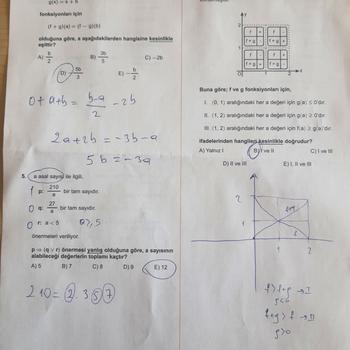 g(x) = x + b
fonksiyonları için
(f + g)(a) = (f – g)(b)
olduğuna göre, a aşağıdakilerden hangisine kesinlikle
eşittir?
A) b/2 B) 3b/5 C) –2b
D) 5b/3 E) –b/2
0+a+b = b-a/2 - 2b
2a+2b = -3b-a
5b = -3a
5. a asal sayısı ile ilgili,
1 p: 210/a bir tam sayıdır.
0 q: 27/a bir tam sayıdır.
0 r: a < 5 a≥5
önermeleri veriliyor.
p ⇒ (q ∨ r) önermesi yanlış olduğuna göre, a sayısının
alabileceği değerlerin toplamı kaçtır?
A) 5 B) 7 C) 8 D) 9 E) 12
210 = 2.3.5.7
y
2
f + f +
f+g + f+g +
1
f f +
f+g + f+g +
O 1 2 x
Buna göre; f ve g fonksiyonları için,
I. (0, 1) aralığındaki her a değeri için g(a) ≤ 0'dır.
II. (1, 2) aralığındaki her a değeri için g(a) ≥ 0'dır.
III. (1, 2) aralığındaki her a değeri için f(a) ≥ g(a)'dır.
ifadelerinden hangileri kesinlikle doğrudur?
A) Yalnız I B) I ve II C) I ve III
D) II ve III E) I, II ve III
2
f+g
1
f
1 2
f > f+g → I
g<0
f+g > f → II
g>0